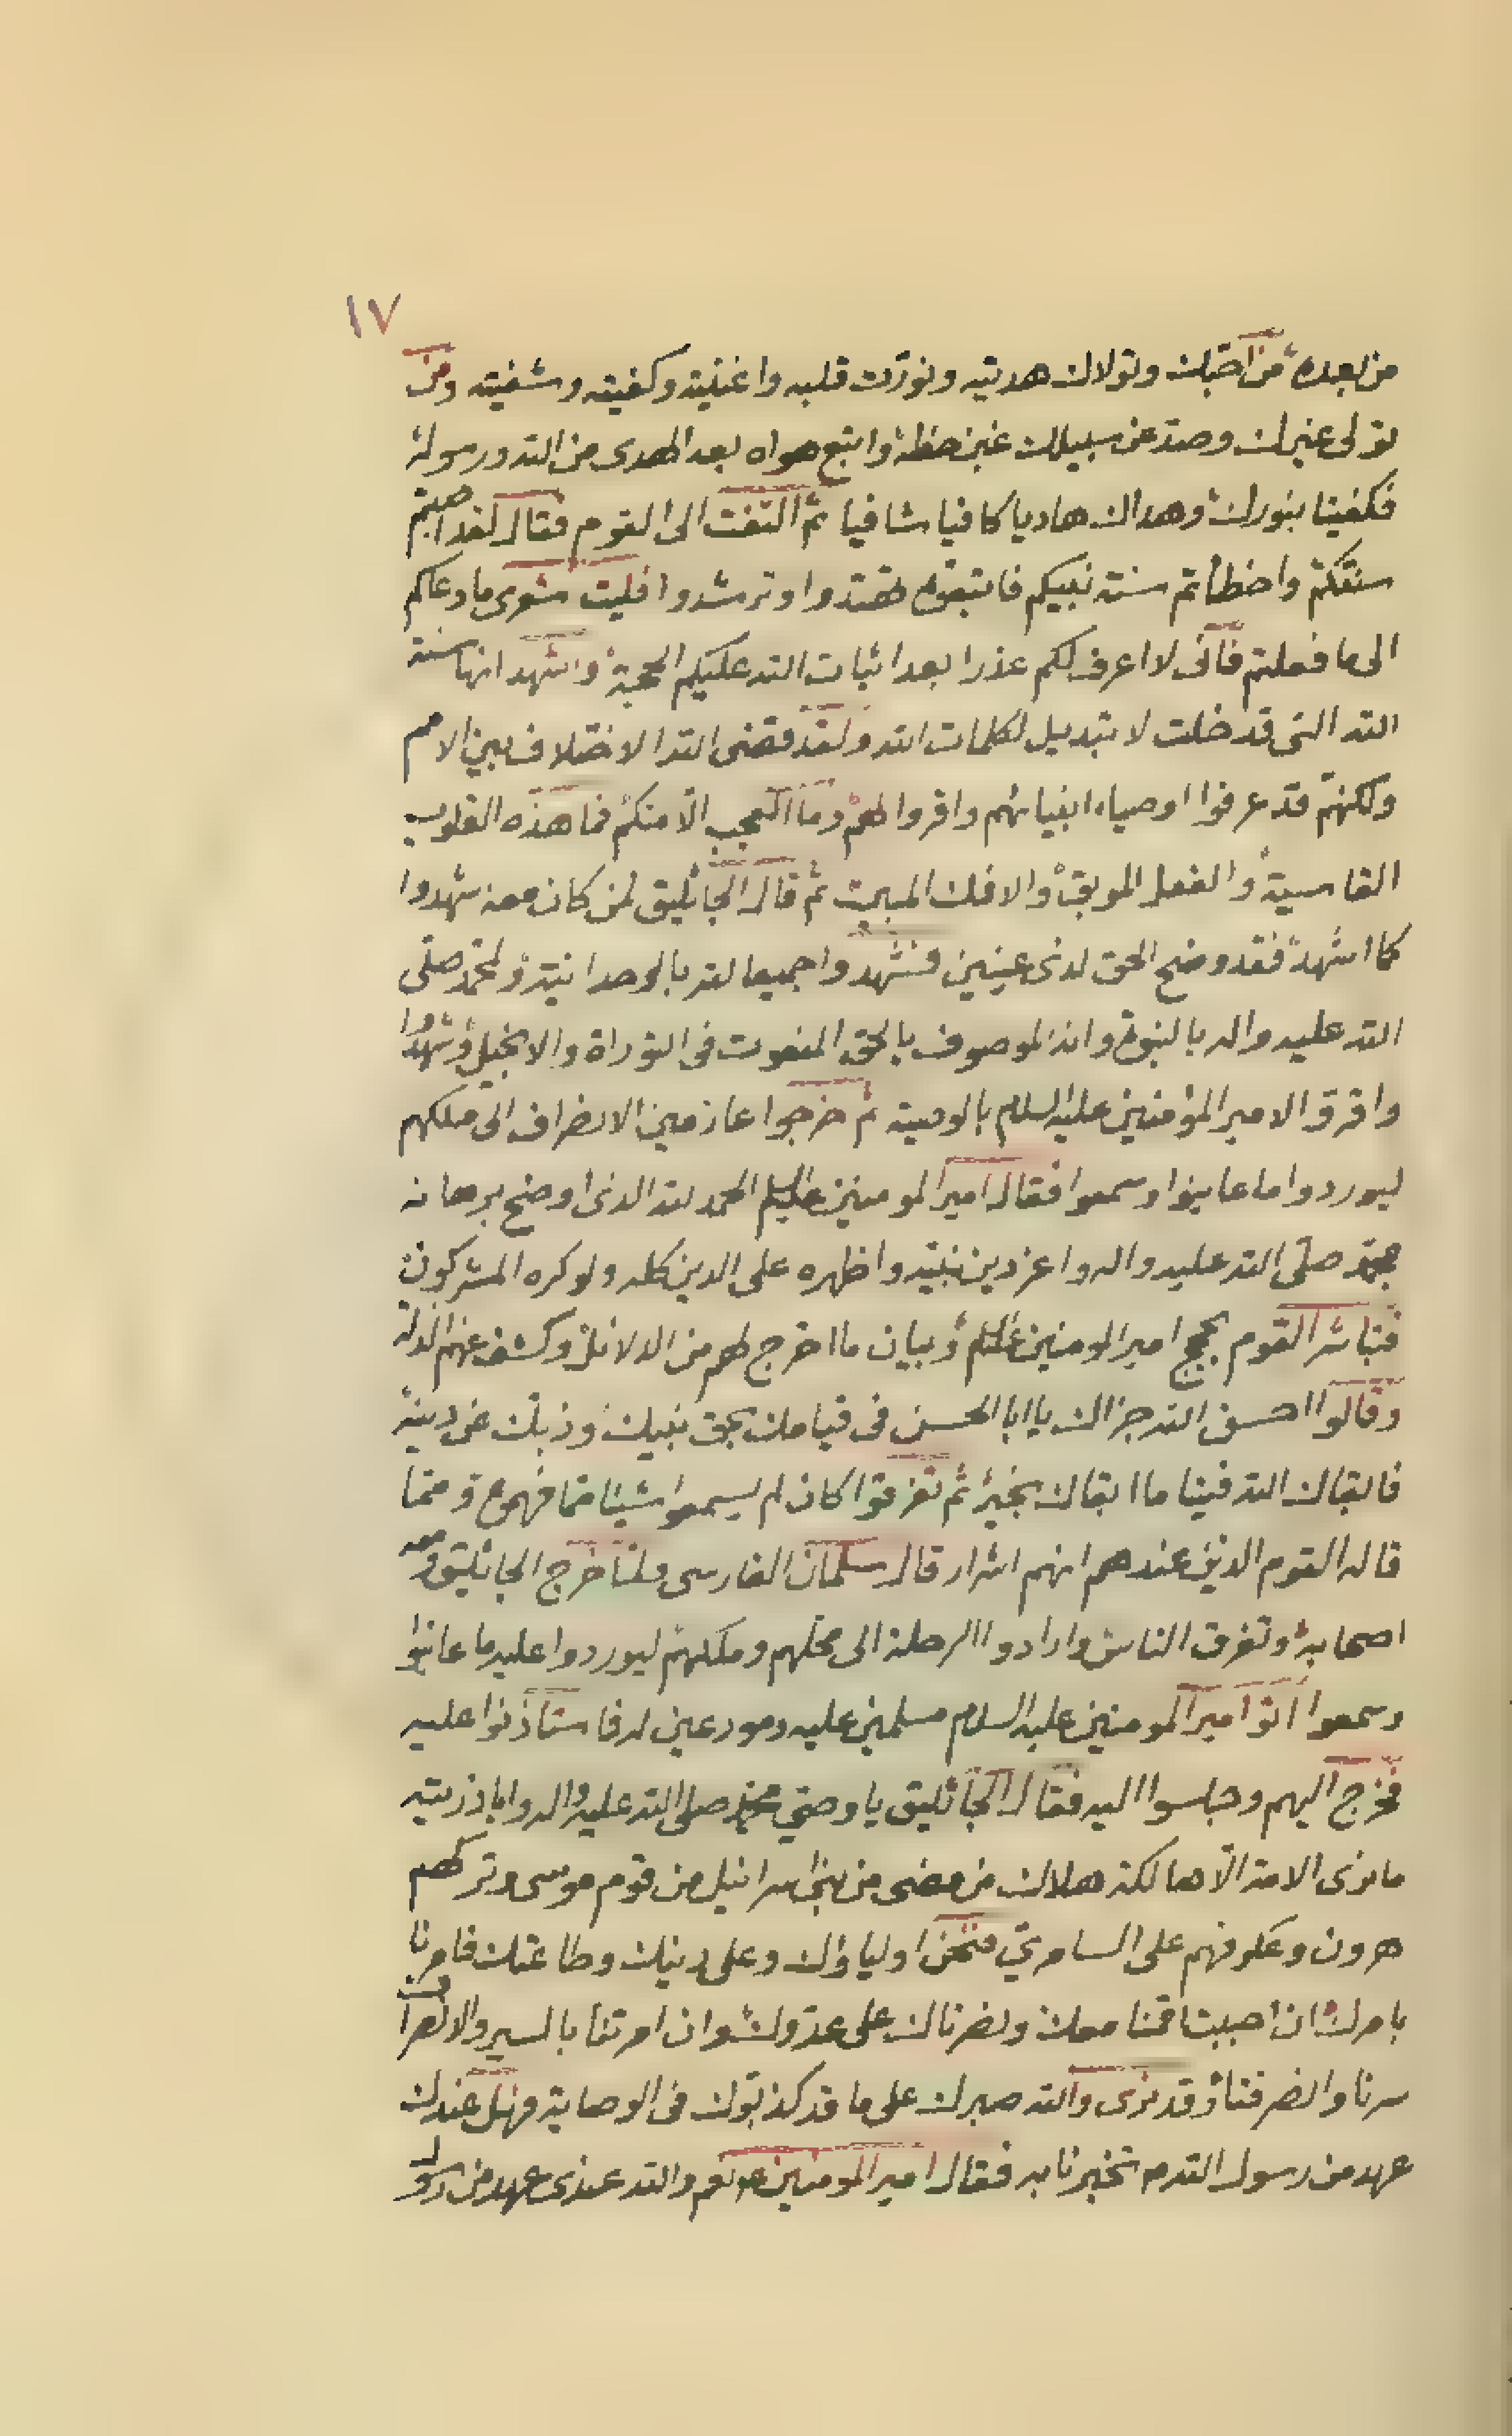 ١٧
من بعده من احبك وتولاك هديته ونورت قلبه واغنيته وكفيته وشفيته ومن
تولى غيرك وصد عن سبيلك غبن حظه واتبع هواه بعد الهدى من الله ورسوله
فكفينا بنورك وهداك هاديا كافيا شافيا ثم التفت الى القوم فقال لقد اصبتم
سنتكم واخطأتم سنة نبيكم فاتبعوه تهتدوا وترشدوا فليت شعرى ما دعاكم
الى ما فعلتم فانى لا اعرف لكم عذرا بعد اثبات الله عليكم الحجة واشهد انها سنة
الله التى قد خلت لا تبديل لكلمات الله ولقد قضى الله الاختلاف بين الامم
ولكنهم قد عرفوا اوصياء انبيائهم واقروا لهم وما العجب الا منكم فما هذه القلوب
القاسية والفعل الموبق والافك المبين ثم قال الجاثليق لمن كان معه شهدوا
كما اشهد فقد وضح الحق لذى عينين فشهدوا جميعا لله بالوحدانية ولمحمد صلى
الله عليه واله بالنبوة وانه لموصوف بالحق المنعوت فى التوراة والانجيل وشهدوا
واقروا لامير المؤمنين عليه السلام بالوصية ثم خرجوا عازمين الانصراف الى ملكهم
ليوردوا ما عاينوا وسمعوا فقال امير المومنين عليه السلم الحمد لله الذى اوضح برهانه
محمد صلى الله عليه واله واعز دين نبيه واظهره على الدين كله ولو كره المشركون
فتباشر القوم بحجج امير المومنين عليه السلم وبيان ما اخرج لهم من الدلائل وكشف عنهم الذلة
وقالوا احسن الله جزاك يا ابا الحسن فى قيامك بحق نبيك وذبك عن دينه
فابقاك الله فينا ما ابقاك بخير ثم تفرقوا كان لم يسمعوا شيئا مما فهموه ومما
قاله القوم الذين عندهم انهم اشرار قال سلمان الفارسى ولما خرج الجاثليق ومعه
اصحابه وتفرق الناس وارادوا الرحلة الى محلهم وملكهم ليوردوا عليه ما عاينوا
وسمعوا اتوا امير المومنين عليه السلام مسلمين عليه ومودعين له فاستاذنوا عليه
فخرج اليهم وجلسوا اليه فقال الجاثليق يا وصى محمد صلى الله عليه واله وابا ذريته
ما نرى الامة الا هالكة هلاك من مضى من بنى اسرائيل من قوم موسى وتركهم
هرون وعكوفهم على السامرى فنحن اولياؤك وعلى دينك وطاعتك فامرنا
بامرك ان احببت اقمنا معك ونصرناك على عدوك وان امرتنا بالسير والانصراف
سرنا وانصرفنا وقد نرى والله صبرك على ما قد كذبوك فى الوصاية فهل عندك
عهد من رسول الله ص تخبرنا به فقال امير المومنين ع نعم والله عندى عهد من رسول